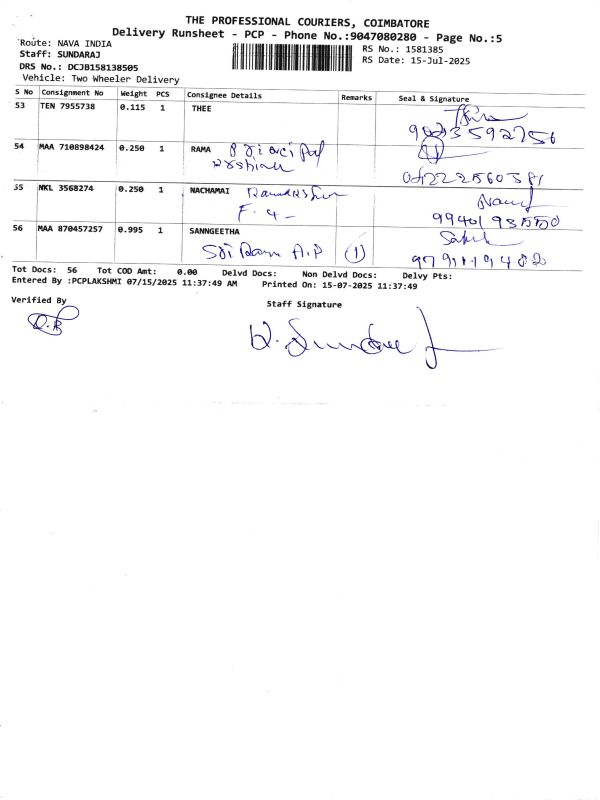 THE PROFESSIONAL COURIERS, COIMBATORE
Delivery Runsheet - PCP - Phone No.:9047080280 - Page No.:5
Route: NAVA INDIA
RS No.: 1581385
Staff: SUNDARAJ
RS Date: 15-Jul-2025
DRS No.: DCJB158138505
Vehicle: Two Wheeler Delivery
S No Consignment No Weight PCS Consignee Details Remarks Seal & Signature
53 TEN 7955738 0.115 1 THEE
54 MAA 710898424 0.250 1 RAMA
35 NKL 3568274 0.250 1 NACHAMAI
F. 4 -
56 MAA 870457257 0.995 1 SANNGEETHA
Sri Ram A.P (1)
Tot Docs: 56 Tot COD Amt: 0.00 Delvd Docs: Non Delvd Docs: Delvy Pts:
Entered By :PCPLAKSHMI 07/15/2025 11:37:49 AM Printed On: 15-07-2025 11:37:49
Verified By
Staff Signature